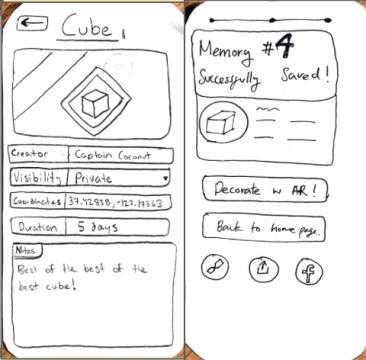 Cube 1
Creator Captain Coconut
Visibility Private
Coordinates 37.42838, -122.17363
Duration 5 days
Notes
Best of the best of the
best cube!
Memory #4
Successfully Saved!
Decorate w AR!
Back to home page.
f